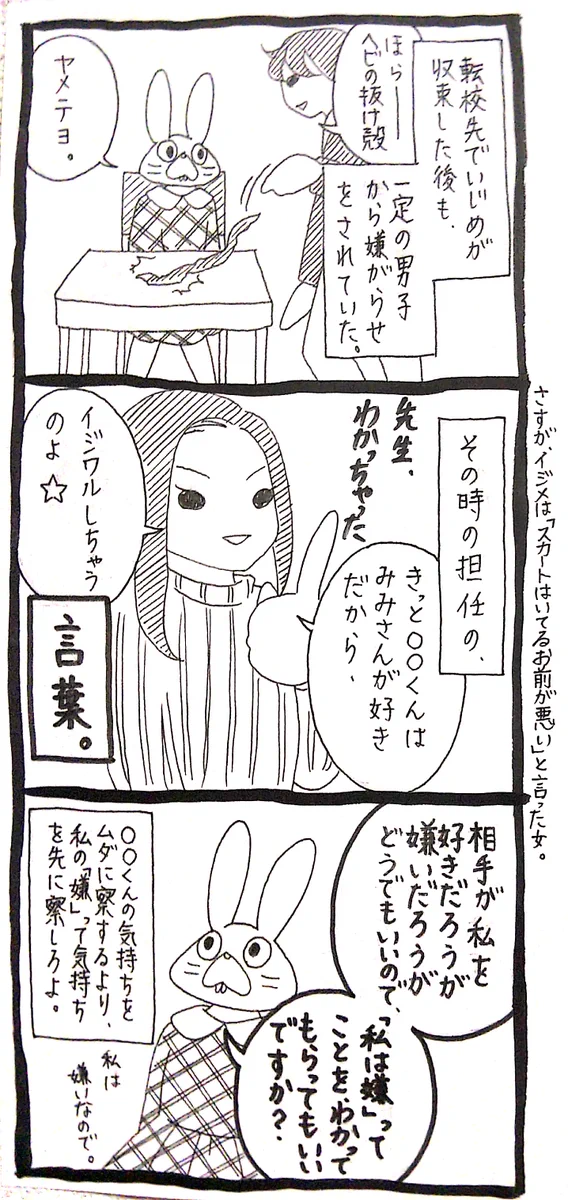 転校先でいじめが
収束した後も、
一定の男子
から嫌がらせ
をされていた。
ほらー
ヘビの抜け殻
ヤメテヨ。
その時の担任の、
先生、
わかっちゃった
きっと〇〇くんは
みみさんが好き
だから、
イジワルしちゃう
のよ☆
言葉。
さすが、イジメは「スカートはいてるお前が悪い」と言った女。
相手が私を
好きだろうが
嫌いだろうが
どうでもいいので、
「私は嫌」って
ことをわかって
もらってもいい
ですか？
〇〇くんの気持ちを
ムダに察するより、
私の「嫌」って気持ち
を先に察しろよ。
私は
嫌いなので。